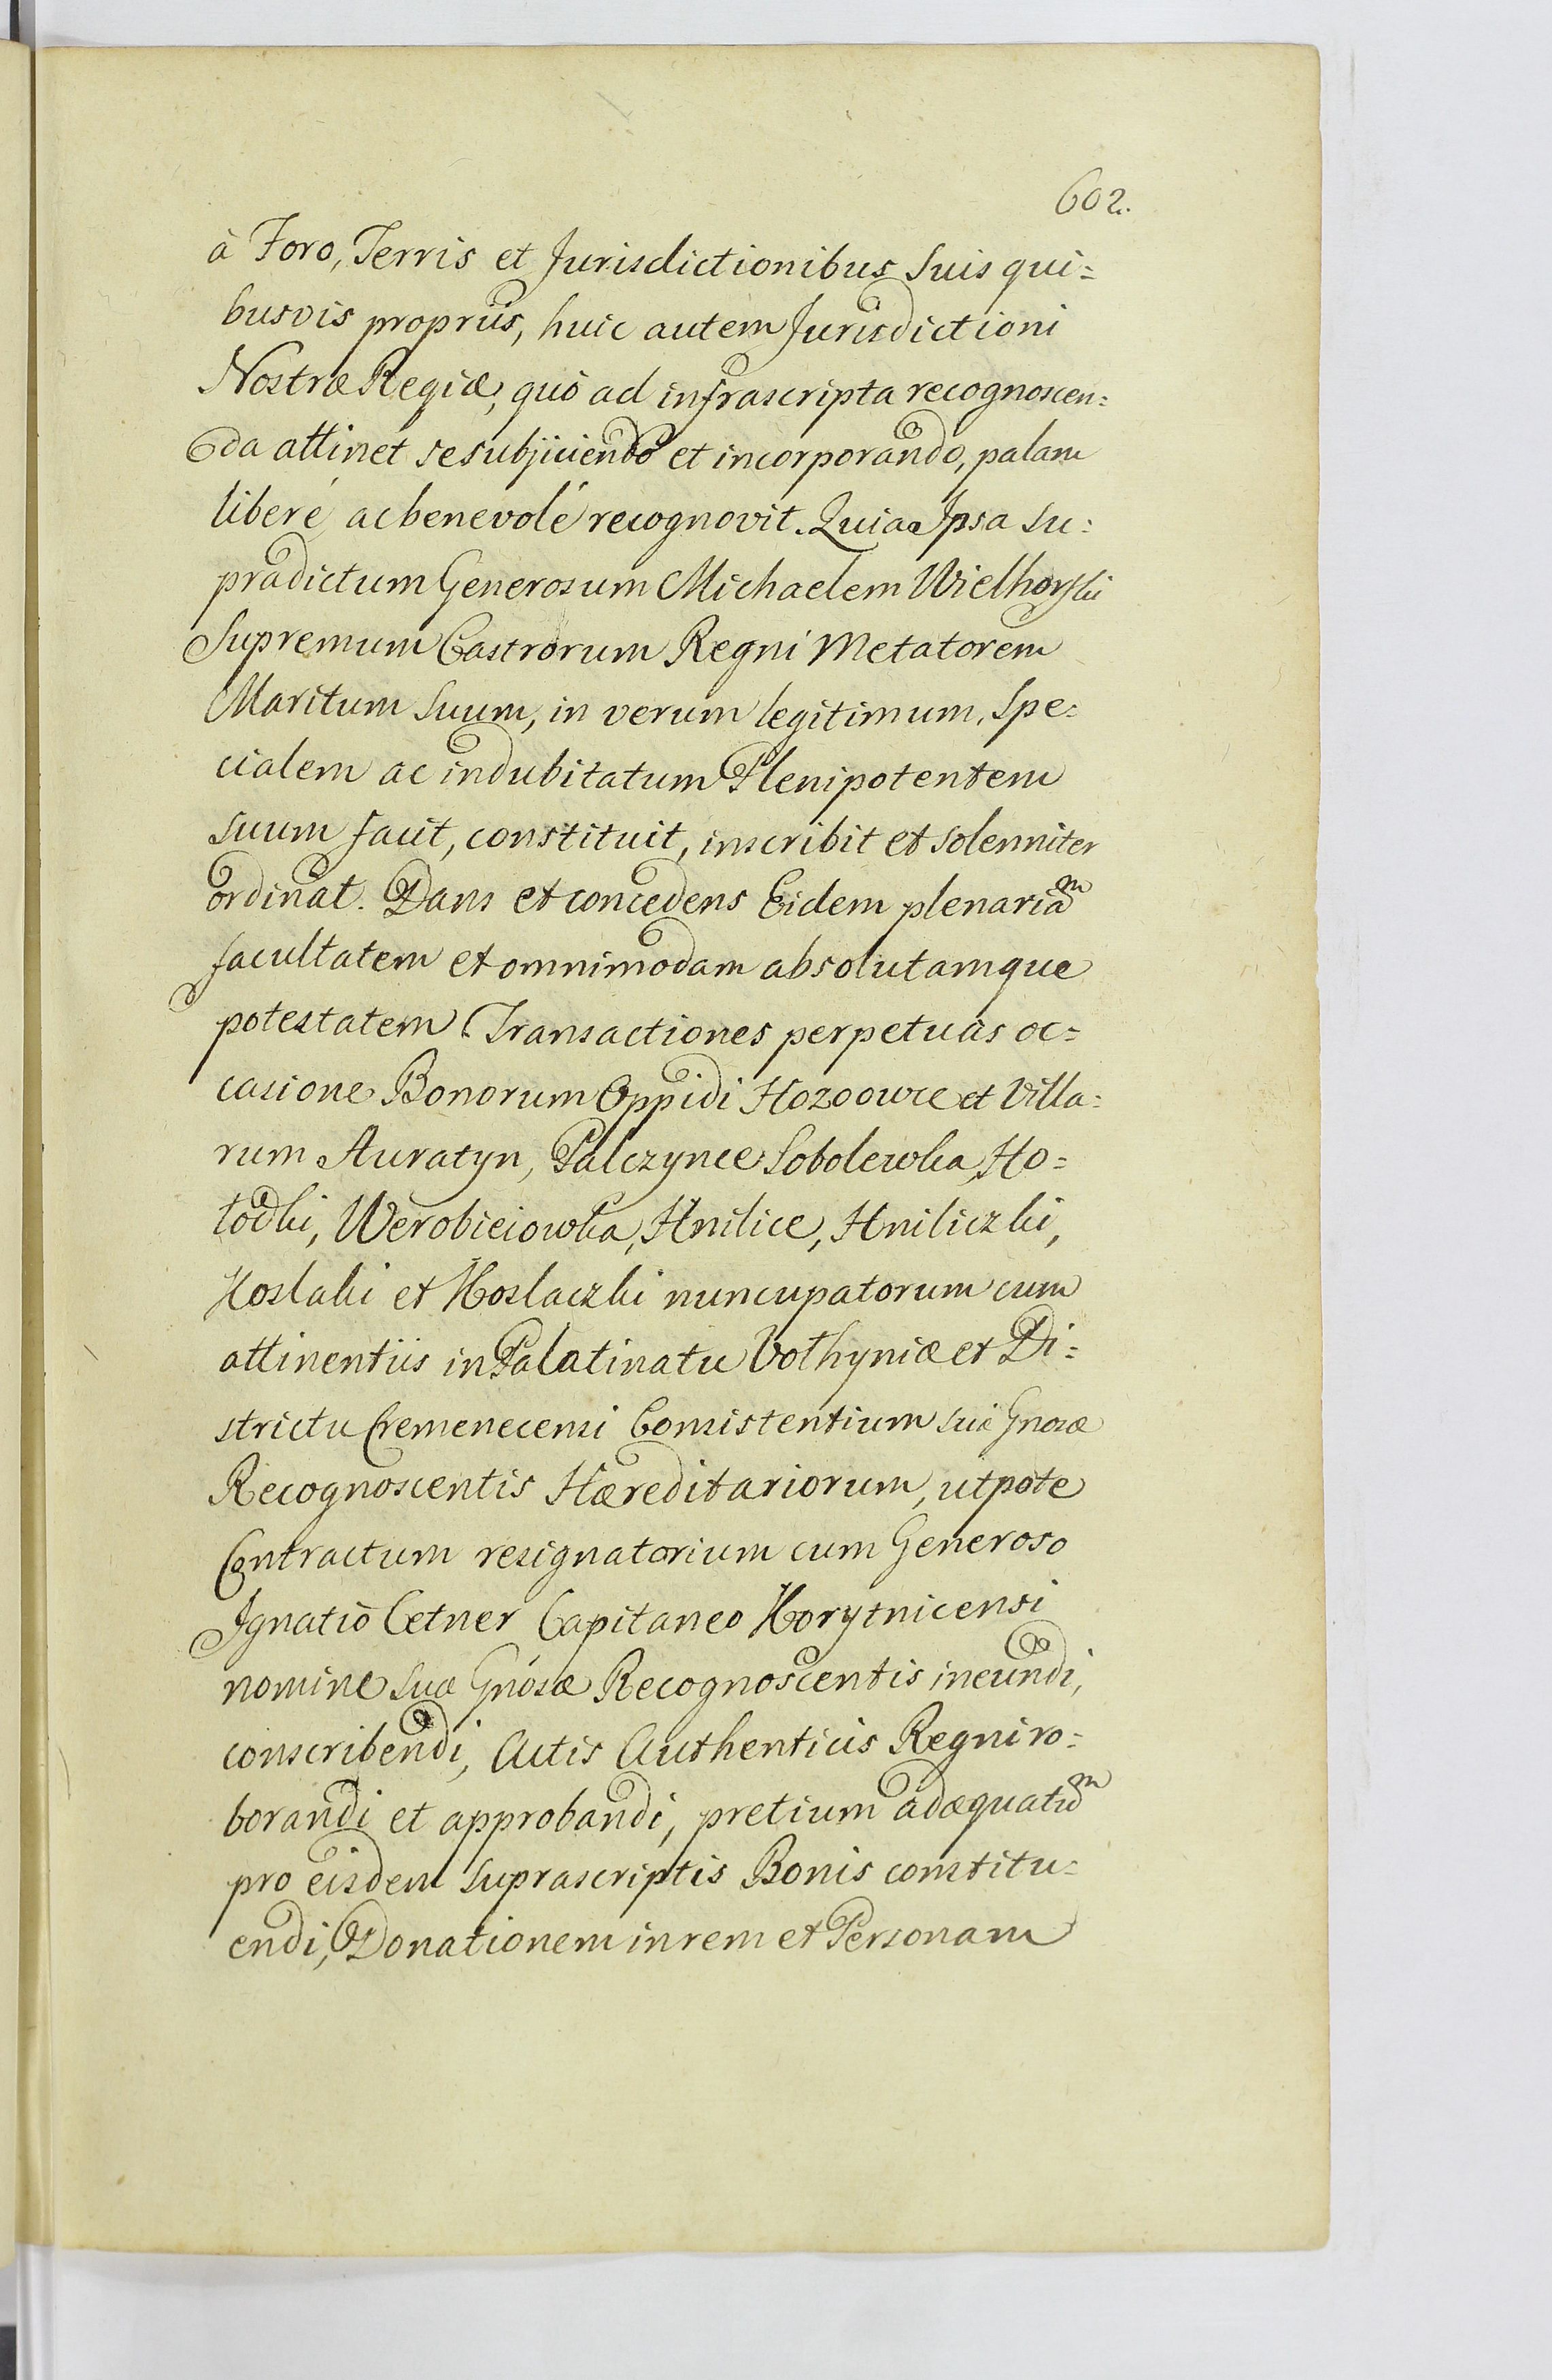 602.
à Foro, Terris et Jurisdictionibus Suis qui=
busvis propriis, huic autem Jurisdictioni
Nostræ Regiæ, quò ad infrascripta recognoscen=
da attinet se subjiciendo et incorporando, palam
liberé ac benevolé recognovit. Quia Ipsa Su=
pradictum Generosum Michaelem Wielhorski
Supremum Castrorum Regni Metatorem
Maritum Suum, in verum legitimum, Spe=
cialem ac indubitatum Plenipotentem
Suum facit, constituit, inscribit et solenniter
ordinat. Dans et concedens Eidem plenariam
facultatem et omnimodam absolutamque
potestatem Transactiones perpetuas oc=
casione Bonorum Oppidi Hozdowce et Villa=
rum Auratyn, Palczynce Sobolewka, Ho=
łodki, Werobieiowka, Hnilice, Hniliczki,
Koslaki et Koslaczki nuncupatorum cum
attinentiis in Palatinatu Volhyniæ et Di=
strictu Cremenecensi Consistentium suæ Gnosæ
Recognoscentis Hæreditariorum, utpote
Contractum resignatorium cum Generoso
Ignatio Cetner Capitaneo Korytnicensi
nomine Suæ Gnosæ Recognoscentis ineundi,
conscribendi, Actis Authenticis Regni ro=
borandi et approbandi, pretium adæquatum
pro eisdem Suprascriptis Bonis constitu=
endi, Donationem in rem et Personam